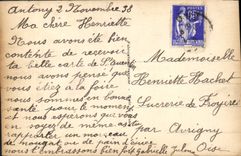 Antony 2 Novembre 38
Ma chère Henriette
Nous avons été bien
contente de recevoir
ta belle carte de
nous avons pensé que
vous étiez à la foire
nous sommes en bonne
santé pour le moment
et nous espérons que vous
en soyez de même
un morceau
de nougat ou de pain d'épice
nous t'embrassons bien fort
Mademoiselle
Henriette Hachet
Sucrerie de
par Avigny
Oise
65